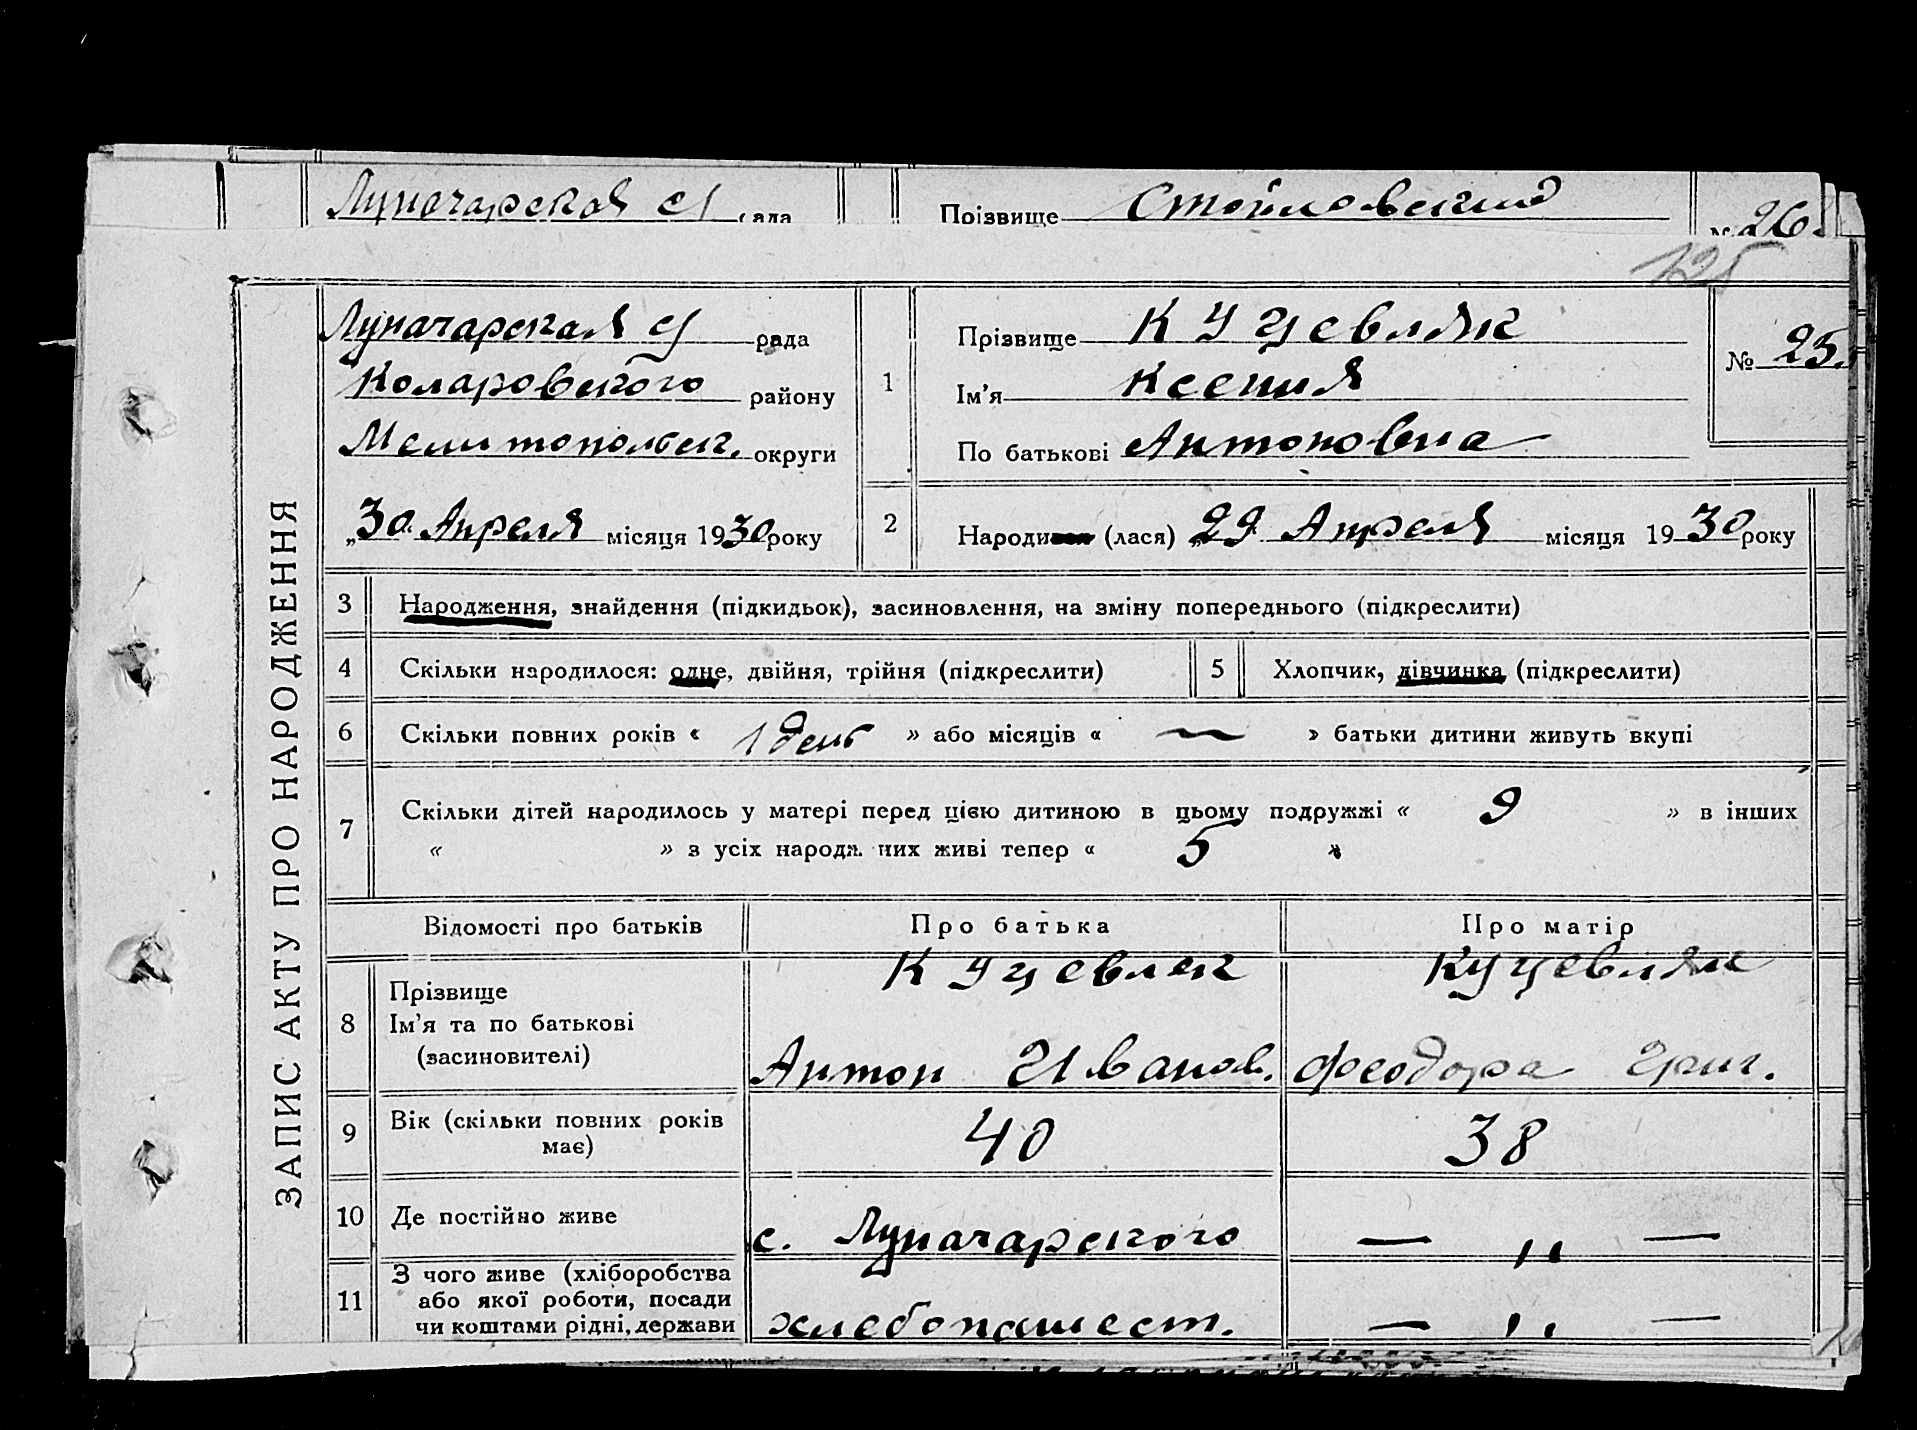 Луначарская с/ рада
Прізвище Стойловский
№ 26.
125
ЗАПИС АКТУ ПРО НАРОДЖЕННЯ
Луначарская с/ рада
Коларовского району
Мелитопольск. округи
„30. Апреля місяця 1930 року
1
Прізвище Куцевляк
Ім’я Ксения
По батькові Антоновна
№ 25.
2 Народи (лася) „29. Апреля місяця 1930 року
3 Народження, знайдення (підкидьок), засиновлення, на зміну попереднього (підкреслити)
4 Скільки народилося: одне, двійня, трійня (підкреслити) 5 Хлопчик, дівчинка (підкреслити)
6 Скільки повних років « 1 день » або місяців « — » батьки дитини живуть вкупі
7 Скільки дітей народилось у матері перед цією дитиною в цьому подружжі « 9 » в інших
« » з усіх народж. них живі тепер « 5 »
Відомості про батьків Про батька Про матір
8 Прізвище Куцевляк Куцевляк
Ім’я та по батькові
(засиновителі) Антон Иванов. Феодора Григ.
9 Вік (скільки повних років
має) 40 38
10 Де постійно живе с. Луначарского — „ —
11 З чого живе (хліборобства
або якої роботи, посади
чи коштами рідні, держави хлебопашест. — „ —